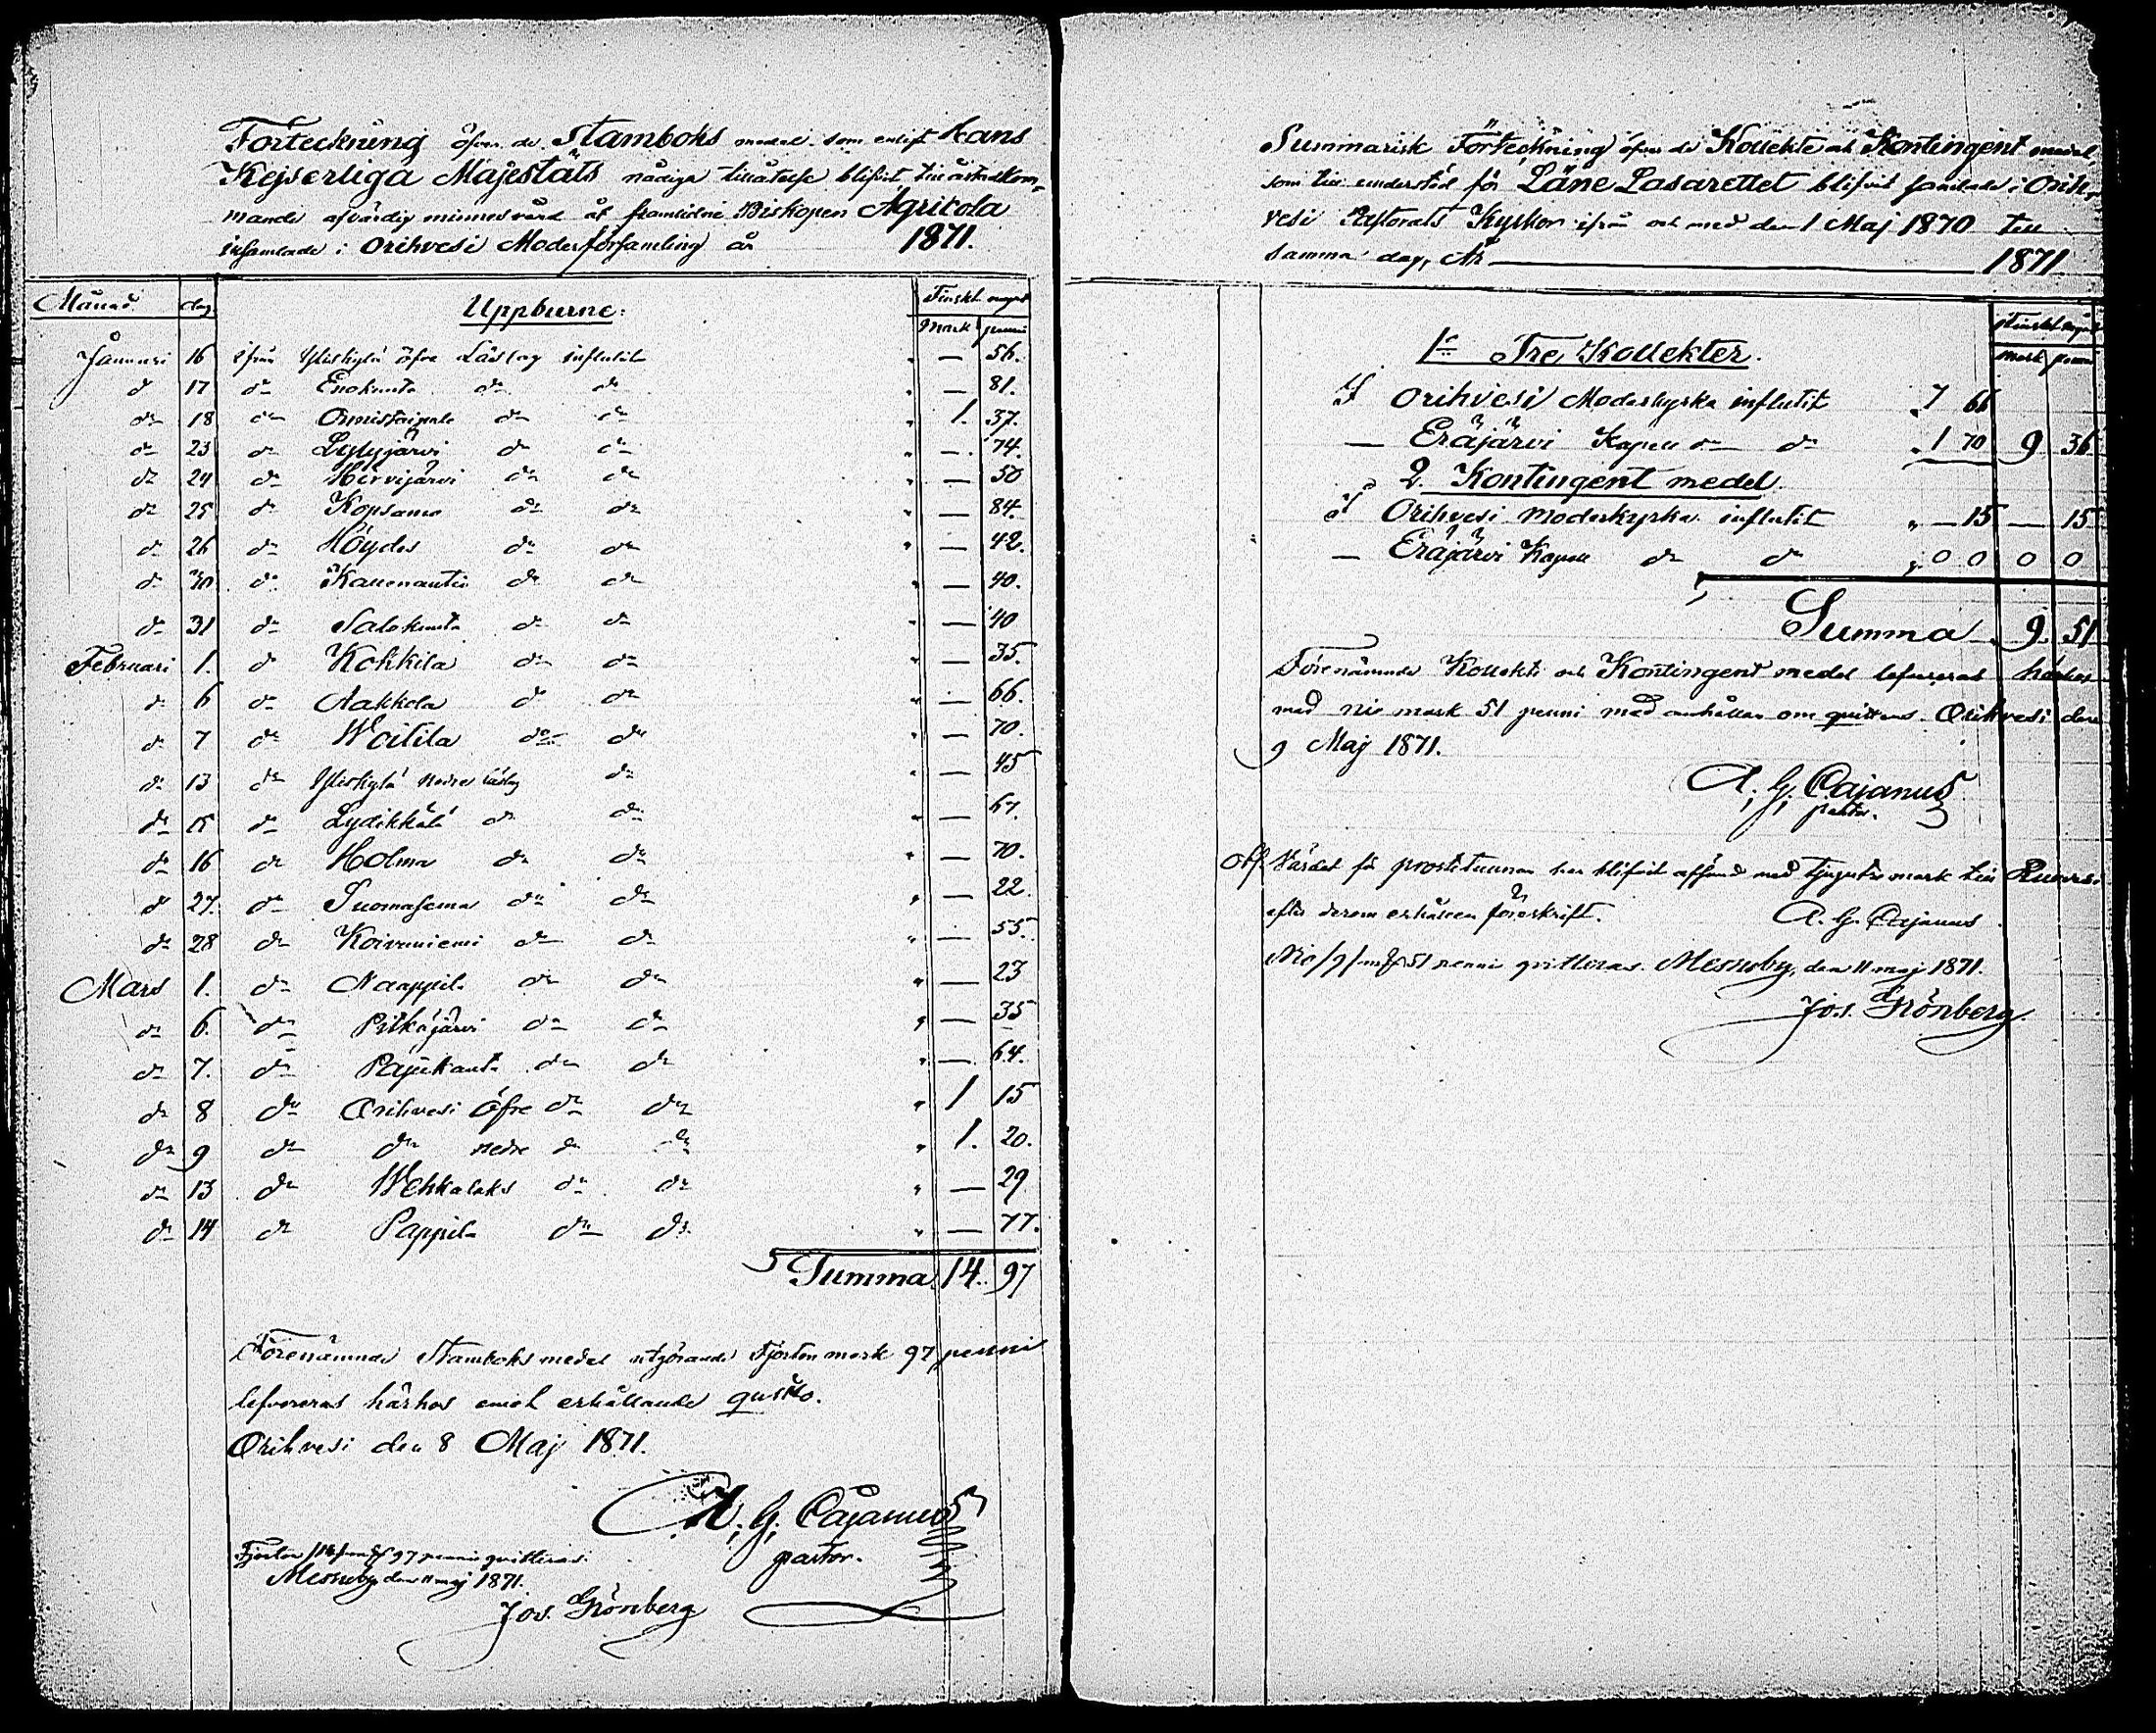 Förteckning öfver de Stamboks medel som enligt Hans
Kejserliga Majestäts nådiga tillåtelse blifvit till åstadkom-
mande af värdig minnesvård åt framlidne Biskopen Agricola
insamlade i Orihvesi Moderförsamling år 1871.
Månad. dag. Uppburne: Finskt mynt
Mark penni
Januari 16 ifrån Yliskylä öfre Läslag influtit " — 56.
d 17 dn Enokunta dn dn " — 81.
dn 18 dn Onnistaipale dn dn " 1. 37.
dn 23 dn Lylyjärvi dn dn " — 74.
dn 24 dn Hirvijärvi dn dn " — 50
dn 25 dn Kopsamo dn dn " — 84.
dn 26 dn Höydes dn dn " — 42.
dn 30 dn Kallenautio dn dn " — 40.
dn 31 dn Salokunta dn dn " — 40
Februari 1. d Kokkila dn dn " — 35.
dn 6 dn Aakkola dn dn " — 66.
dn 7 dn Woitila dn dn " — 70.
dn 13 dn Yliskylä nedre läslag dn " — 45
dn 15 dn Lydikkälä dn dn " — 67.
dn 16 dn Holma dn dn " — 70.
dn 27. dn Suomasema dn dn " — 22.
dn 28 dn Koivuniemi dn dn " — 55.
Mars 1. dn Naappila dn dn " — 23
dn 6. dn Pitkäjärvi dn dn " — 35
dn 7. dn Pajukanta dn dn " — 64.
dn 8 dn Orihvesi öfre dn dn " 1 15
dn 9 dn dn nedre dn dn " 1. 20.
dn 13 dn Wehkalaks dn dn " — 29
dn 14 dn Pappila dn dn " — 77.
Summa 14. 97
Förenämnde Stamboks medel utgörande Fjorton mark 97 penni
lefvereras härhos emot erhållande qvitto.
Orihvesi den 8 Maj 1871.
A. G. Cajanus
pastor.
Fjorton /14/ mk 97 penni qvitteras.
Messuby den 11 maj 1871.
Jos. Grönberg
Summarisk Förteckning öfver de Kollekte och Kontingent medel
som till understöd för Läne Lasarettet blifvit samlade i Orih-
vesi Pastorats Kyrkor ifrån och med den 1 Maj 1870 till
samma dag, År 1871
Finskt mynt
mark penni
1o Tre Kollekter.
I Orihvesi Moderkyrka influtit " 7 66
— Eräjärvi Kapell dn dn " 1 70 9 36
2. Kontingent medel.
I Orihvesi Moderkyrka influtit " — 15 — 15
— Eräjärvi Kapell dn dn " 0 0 0 0
Summa 9 51
Förenämnde Kollekt och Kontingent medel lefvereras härhos
med nio mark 51 penni med anhållan om qvittens. Orihvesi den
9 Maj 1871.
A. G. Cajanus
pastor.
Obs. Värdet för prosttunnan har blifvit med mark till
efter derom erhållen föreskrift. A. G. Cajanus
Nio /9/ mk 51 penni qvitteras. Messuby, den 11 maj 1871.
Jos. Grönberg.